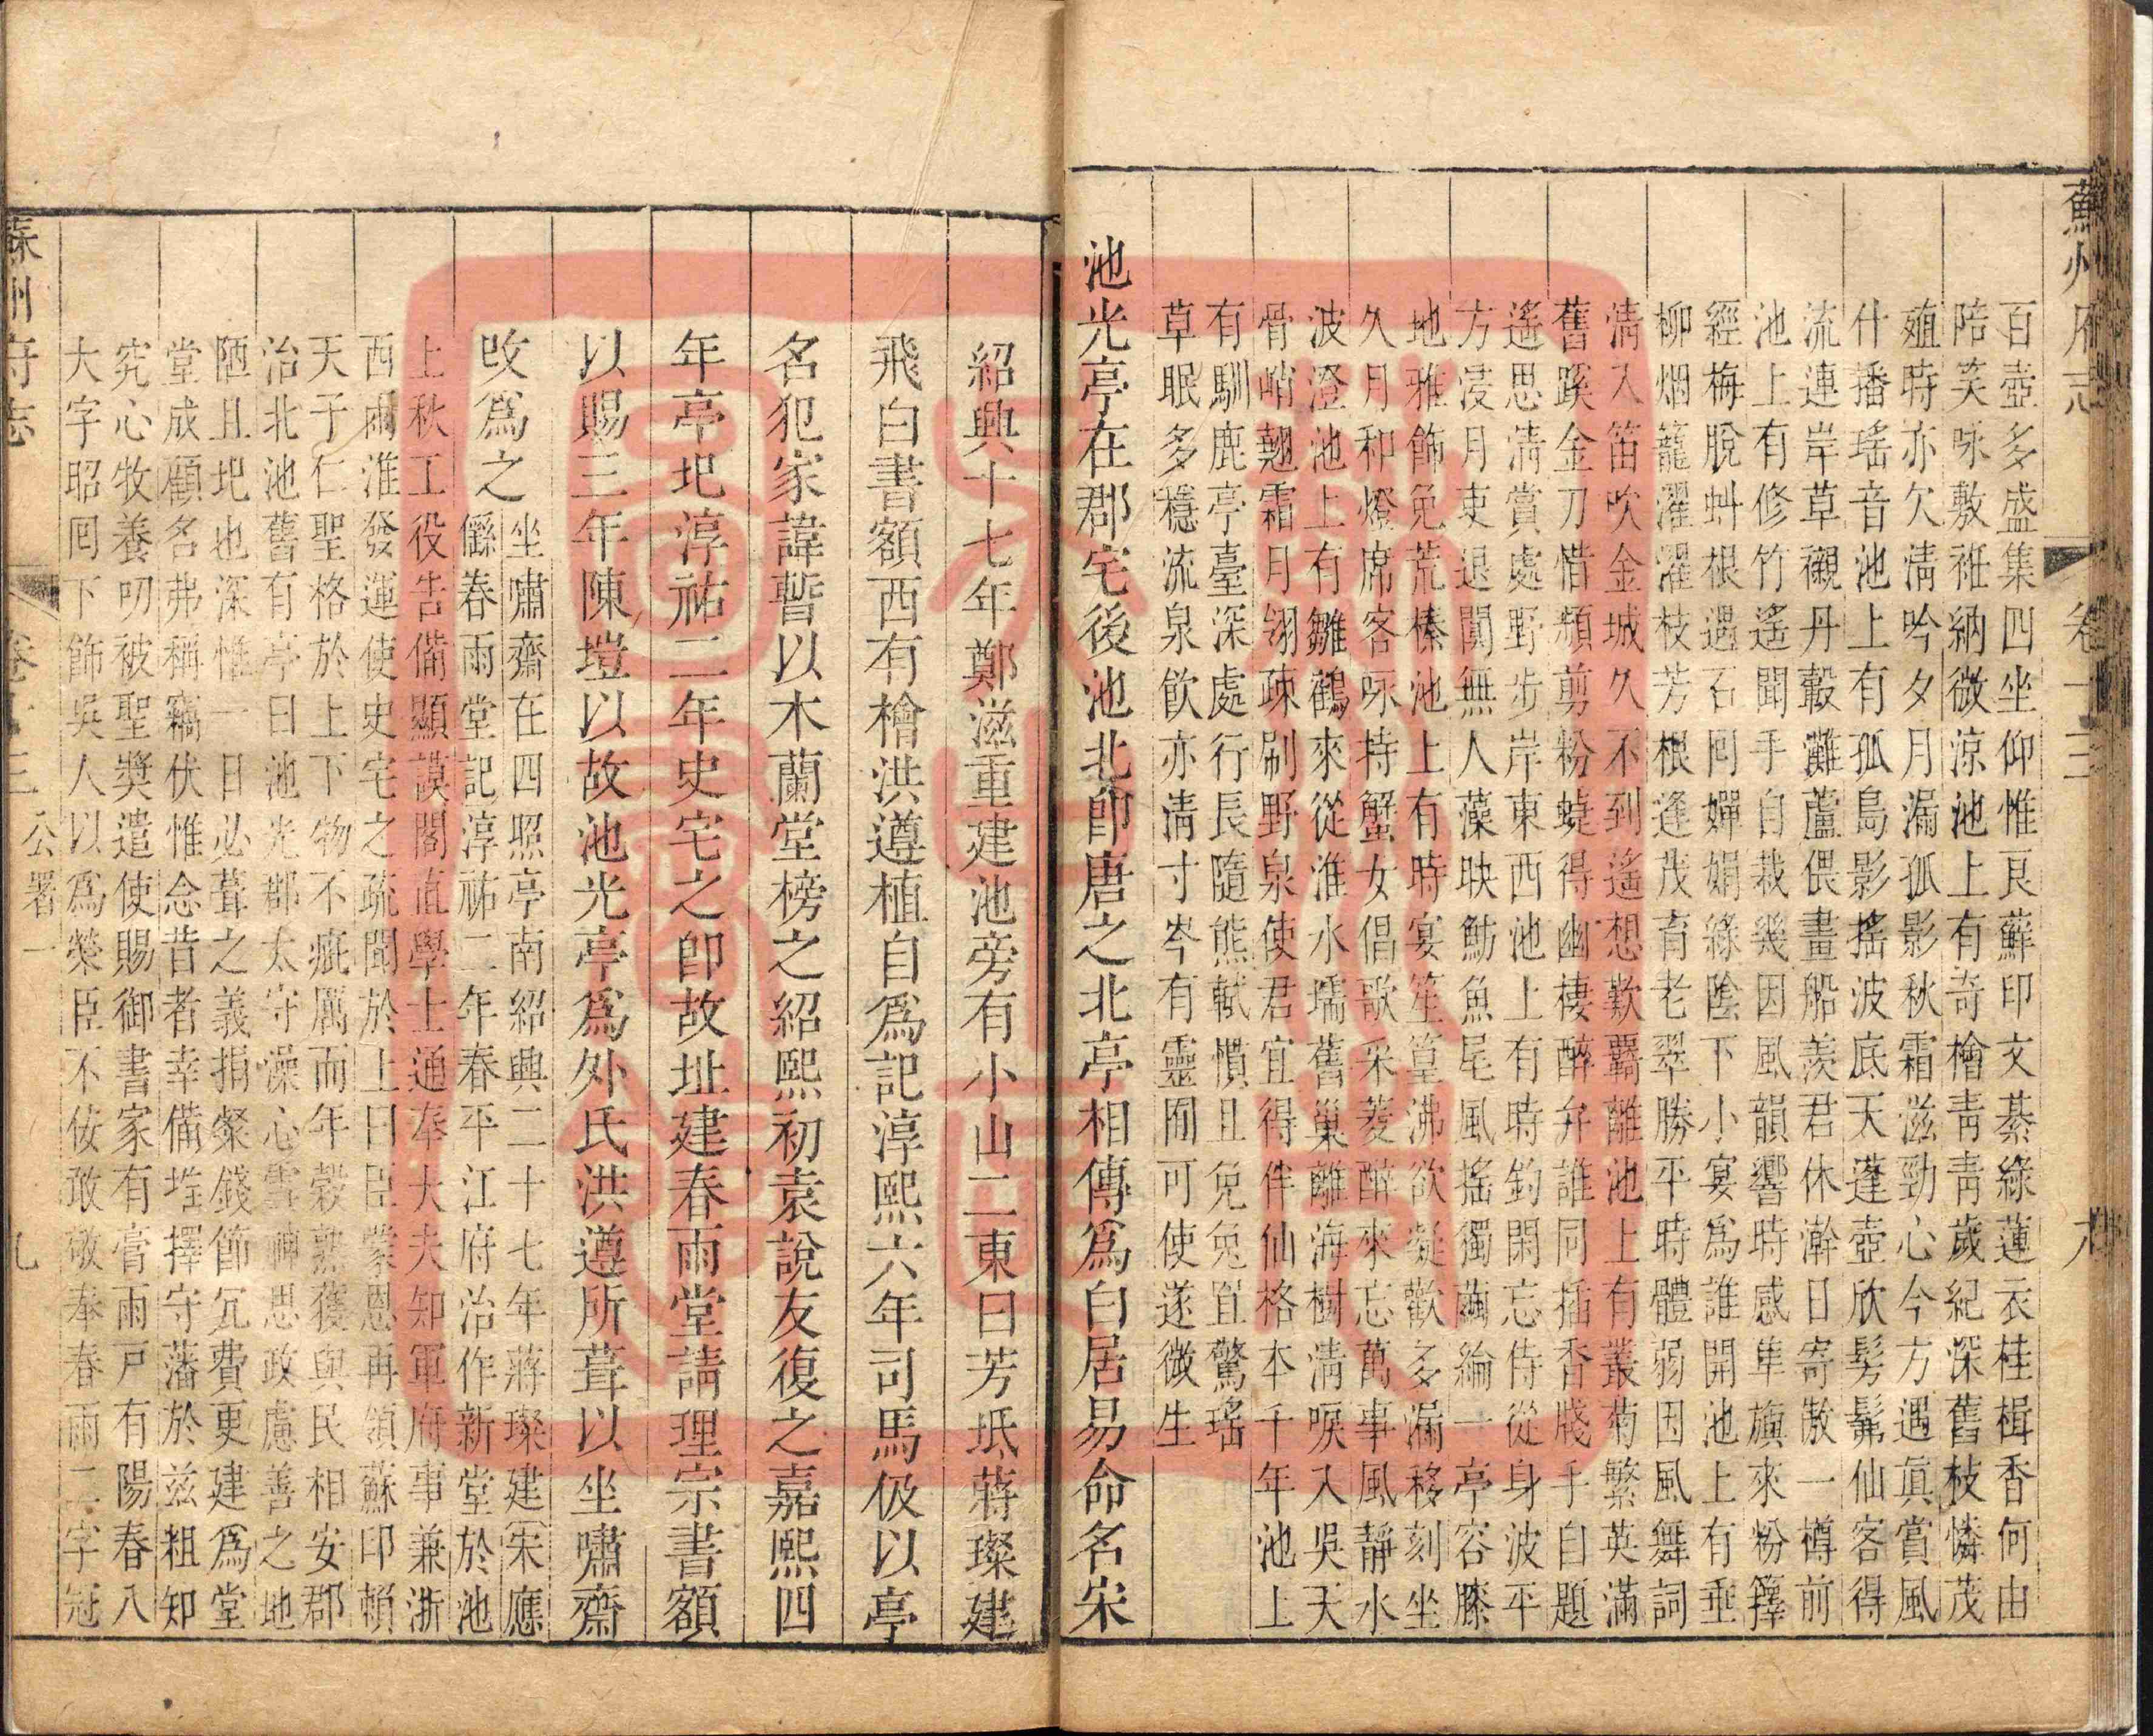 蘇州府志
卷十三
百壺多盛集四坐仰惟良蘇印文綦綠蓮衣桂楫香何由
陪笑咏敷衽納微涼池上有奇檜青青歲紀深舊枝憐茂
殖時亦欠清吟夕月漏孤影秋霜滋勁心今方遇眞賞風
什播瑤音池上有孤島影搖波底天蓬壺欣髣髴仙客得
流連岸草襯丹轂灘蘆偎畫船羨君休澣日寄傲一樽前
池上有修竹遙聞手自栽幾因風韻響時感隼旟來粉籜
經梅脫虯根遇石囘嬋娟綠陰下小宴爲誰開池上有垂
柳烟籠濯濯枝芳根逢茂育老翠勝平時體弱因風舞詞
清入笛吹金城久不到遙想歎覊離池上有叢菊繁英滿
舊蹊金刀惜頻剪粉蝶得幽棲醉弁誰同插香牋手自題
遙思清賞處野步岸東西池上有時釣閑忘侍從身波平
方浸月吏退闃無人藻映魴魚尾風搖獨繭綸一亭容膝
地雅飾免荒榛池上有時宴笙篁沸欲凝歡多漏移刻坐
久月和燈席客咏持蟹女倡歌采菱醉來忘萬事風靜水
波澄池上有雛鶴來從淮水壖舊巢離海樹清唳入吳天
骨峭翹霜月翎疎刷野泉使君宜得伴仙格本千年池上
有馴鹿亭臺深處行長隨熊軾慣且免兔罝驚瑤
草眠多穩流泉飲亦清寸岑有靈囿可使遂微生
池光亭在郡宅後池北卽唐之北亭相傳爲白居易命名宋
紹興十七年鄭滋重建池旁有小山二東曰芳坻蔣璨建
飛白書額西有檜洪遵植自爲記淳熙六年司馬伋以亭
名犯家諱暫以木蘭堂榜之紹熙初袁說友復之嘉熙四
年亭圯淳祐二年史宅之卽故址建春雨堂請理宗書額
以賜三年陳塏以故池光亭爲外氏洪遵所葺以坐嘯齋
攺爲之
坐嘯齋在四照亭南紹興二十七年蔣璨建宋應
繇春雨堂記淳祐二年春平江府治作新堂於池
上秋工役告備顯謨閣直學士通奉大夫知軍府事兼浙
西兩淮發運使史宅之疏聞於上曰臣蒙恩再領蘇印賴
天子仁聖格於上下物不疵厲而年穀熟獲與民相安郡
治北池舊有亭曰池光郡太守澡心雪神思政慮善之地
陋且圯也深惟一日必葺之義捐粲錢節冗費更建爲堂
堂成顧名弗稱竊伏惟念昔者幸備堦擇守藩於兹粗知
究心牧養叨被聖奬遣使賜御書家有膏雨戸有陽春八
大字昭囘下飾吳人以爲榮臣不佞敢敬奉春雨二字冠
蘇州府志
公署一
九